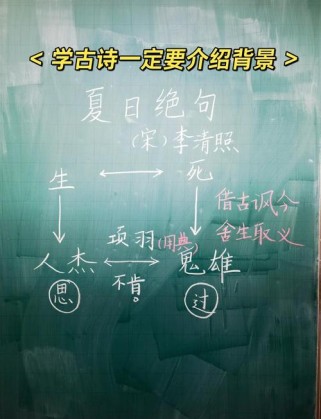 < 学古诗一定要介绍背景 >
夏日绝句
(宋)李清照
生 死
借古讽今
舍生取义
项羽(用典)
人杰 鬼雄
不肯。
思 过